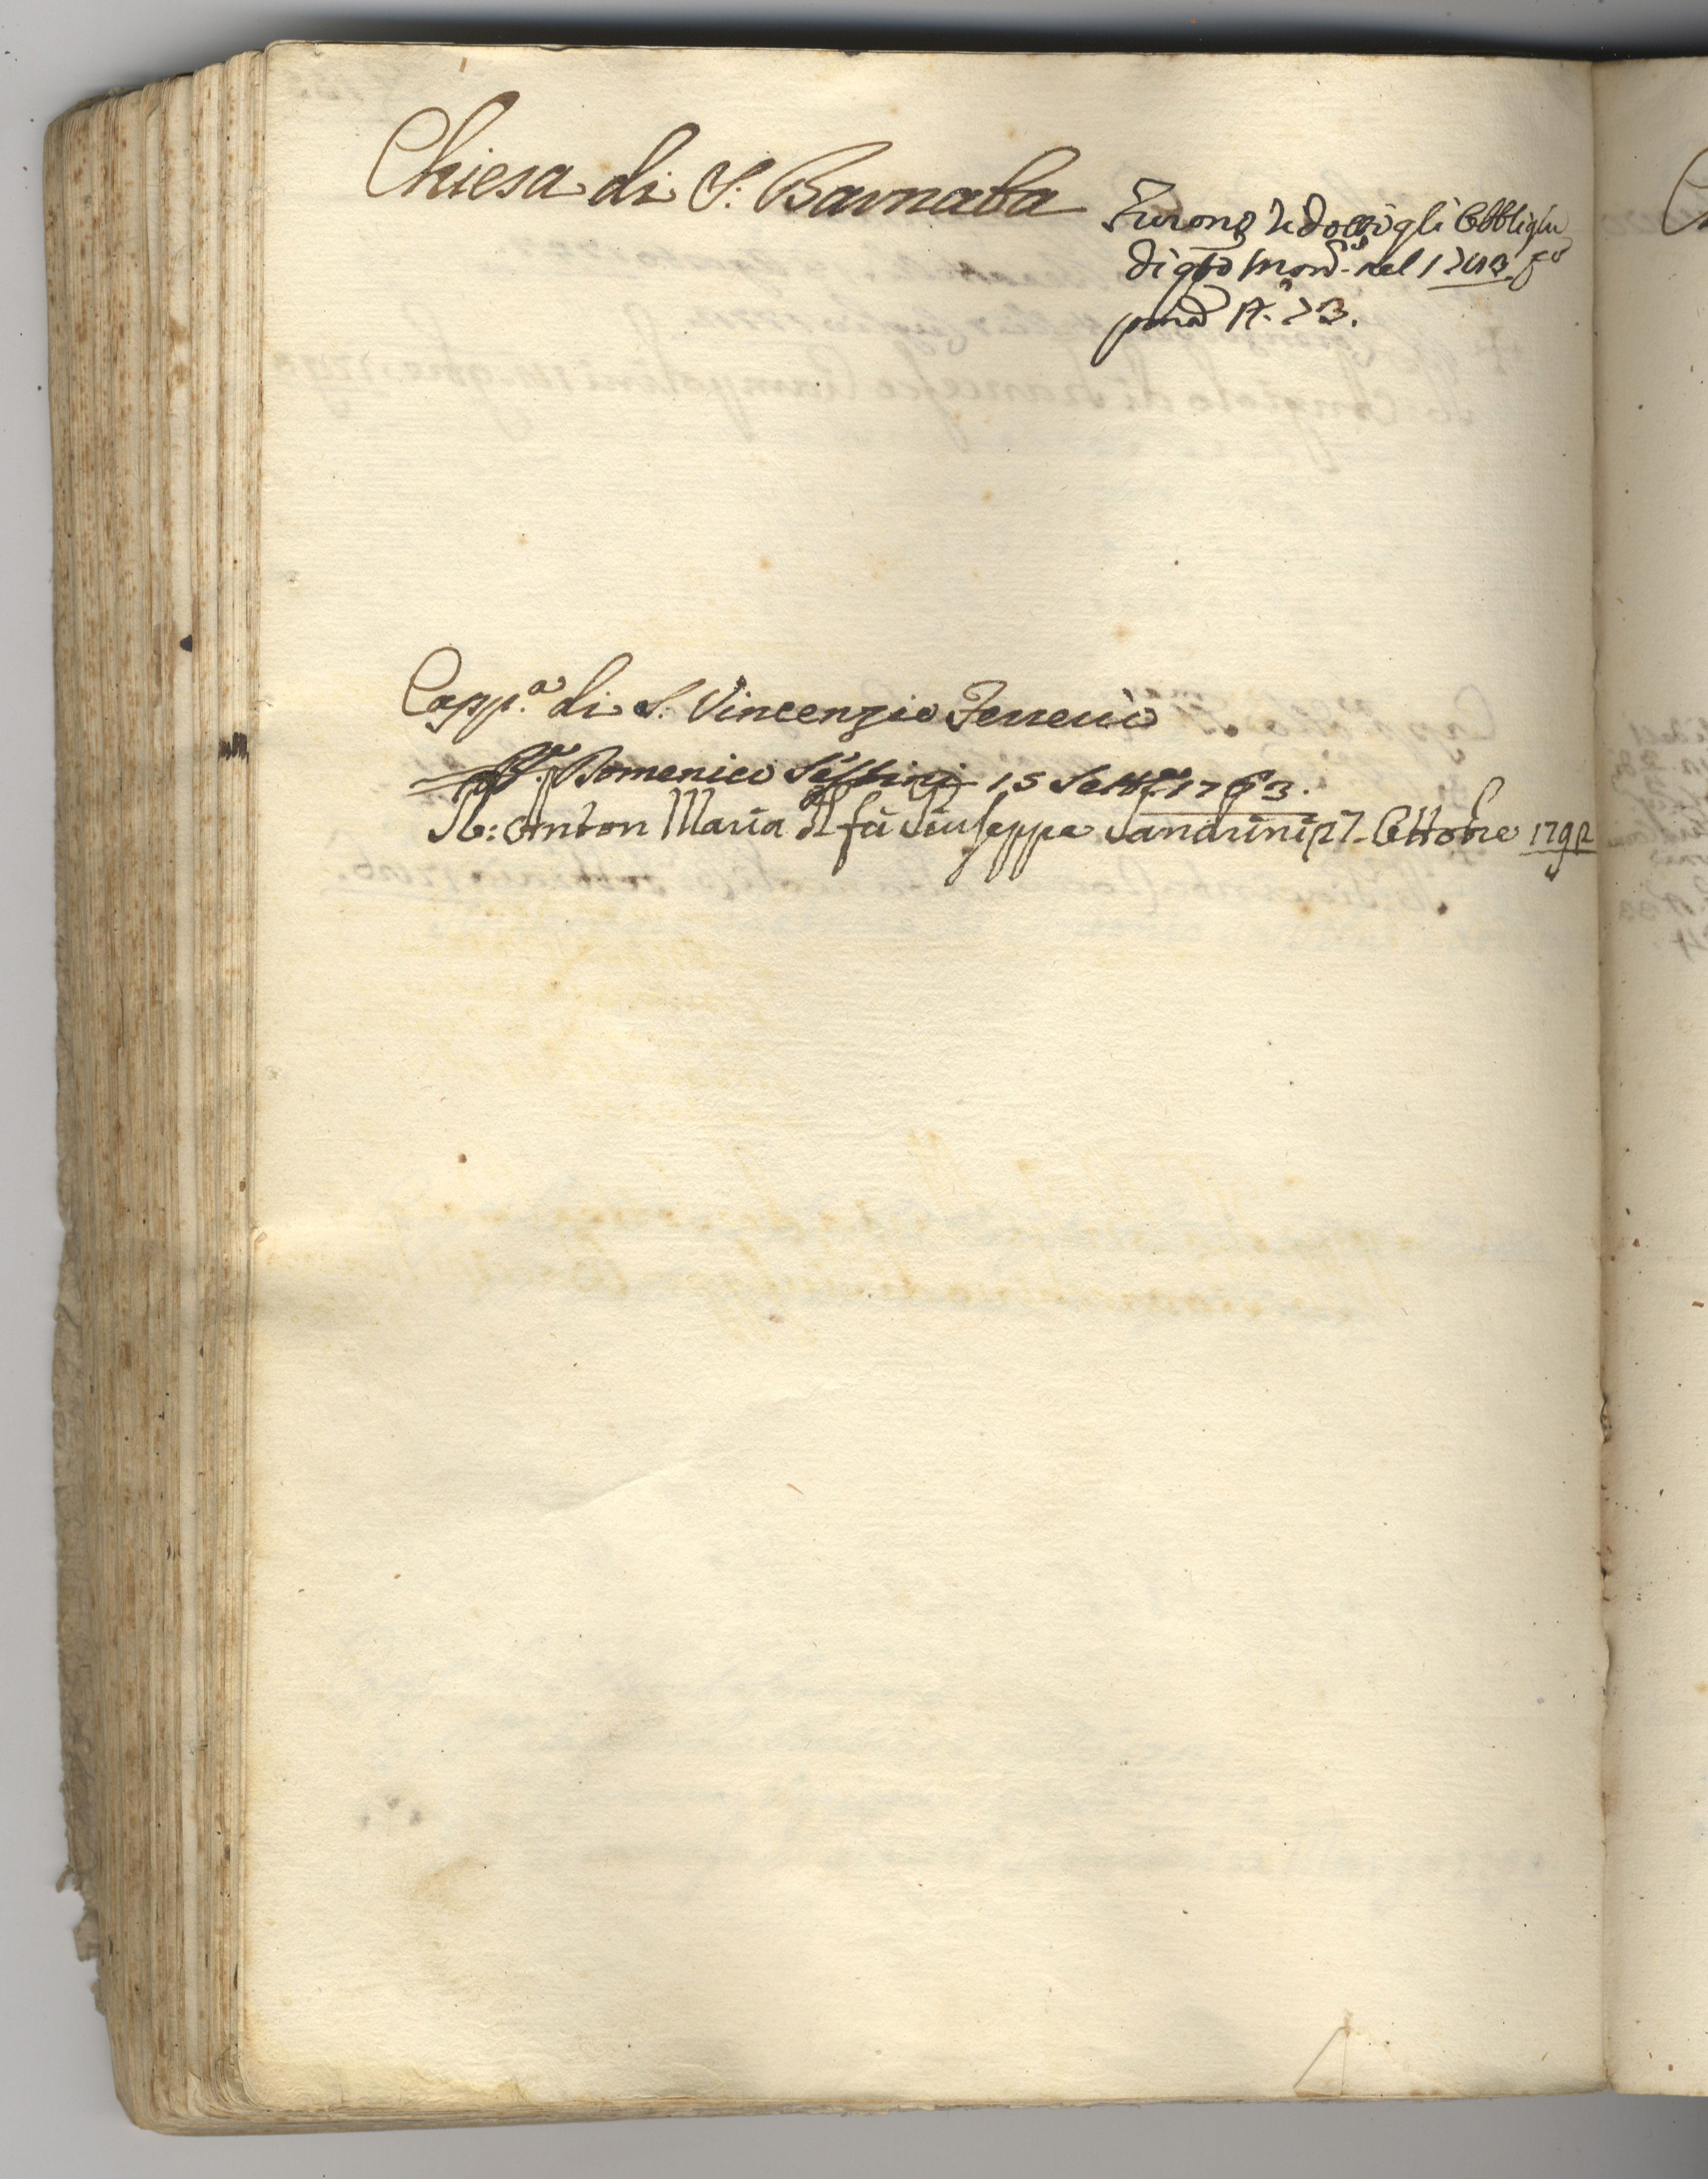 Chiesa di S. Barnaba
Furono ridotti gli Obblighi
di qto Mon. nel 1743
A. 73.
Capp.a di S. Vincenzio Ferreri
Domenico Sestini 15 Sett.e 1763.
R: Anton Maria del fù Giuseppe Sandrini 27. Ottobre 1792